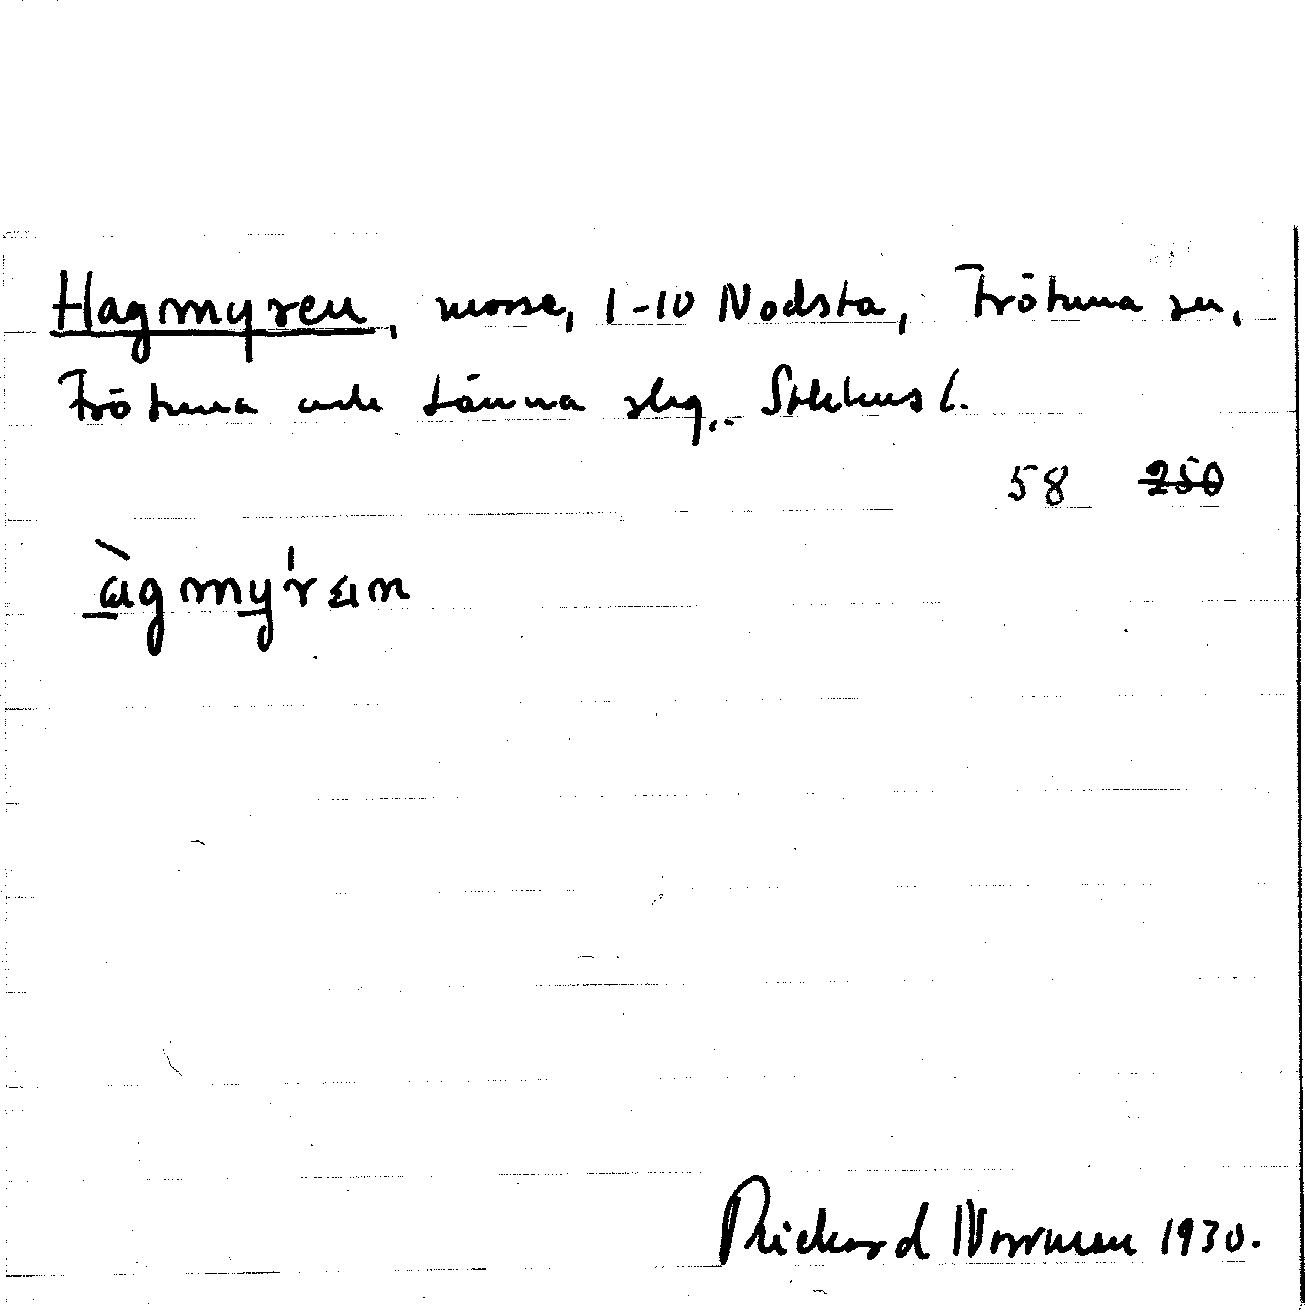 Hagmyren, mosse, 1-10 Nodsta, Frötuna sn,
Frötuna och Länna slg, Sthlms l.
58 250
àgmy'ran
Rickard Norrman 1930.